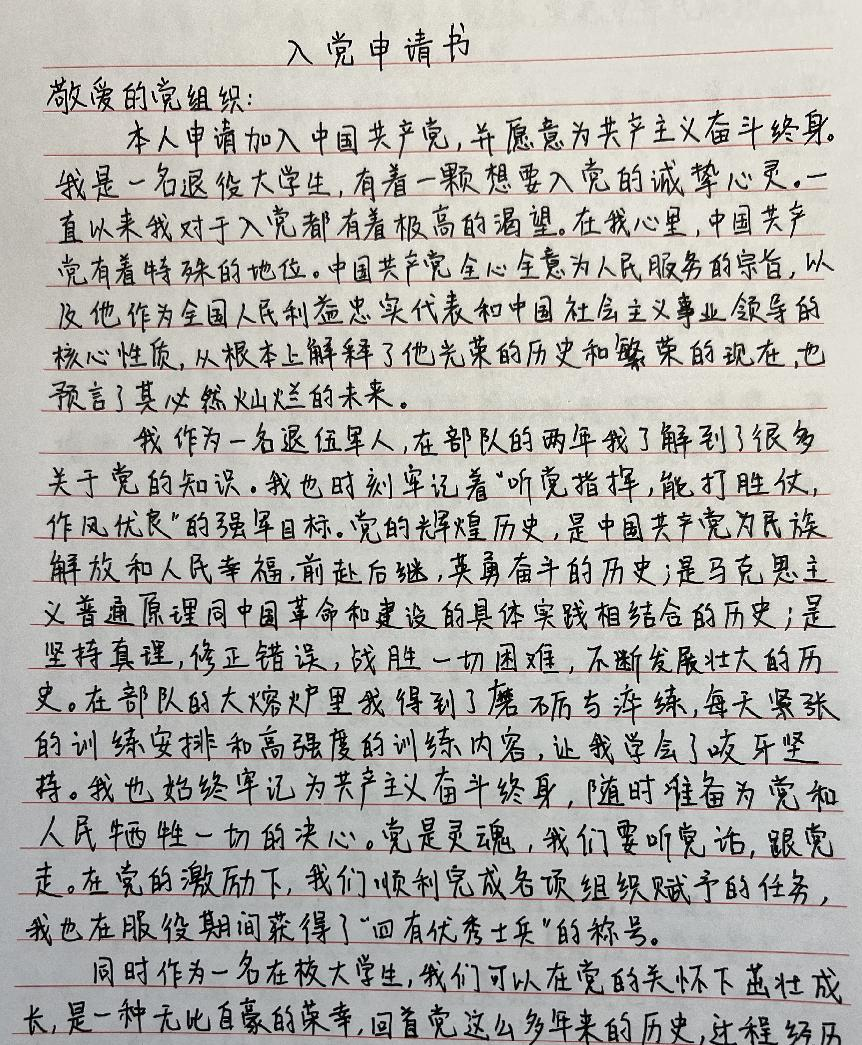 入党申请书
敬爱的党组织：
本人申请加入中国共产党，并愿意为共产主义奋斗终身。
我是一名退役大学生，有着一颗想要入党的诚挚心灵。一
直以来我对于入党都有着极高的渴望。在我心里，中国共产
党有着特殊的地位。中国共产党全心全意为人民服务的宗旨，以
及他作为全国人民利益忠实代表和中国社会主义事业领导的
核心性质，从根本上解释了他光荣的历史和繁荣的现在，也
预言了其必然灿烂的未来。
我作为一名退伍军人，在部队的两年我了解到了很多
关于党的知识。我也时刻牢记着“听党指挥，能打胜仗，
作风优良”的强军目标。党的辉煌历史，是中国共产党为民族
解放和人民幸福，前赴后继，英勇奋斗的历史；是马克思主
义普通原理同中国革命和建设的具体实践相结合的历史；是
坚持真理，修正错误，战胜一切困难，不断发展壮大的历
史。在部队的大熔炉里我得到了磨砺与淬练，每天紧张
的训练安排和高强度的训练内容，让我学会了咬牙坚
持。我也始终牢记为共产主义奋斗终身，随时准备为党和
人民牺牲一切的决心。党是灵魂，我们要听党话，跟党
走。在党的激励下，我们顺利完成各项组织赋予的任务，
我也在服役期间获得了“四有优秀士兵”的称号。
同时作为一名在校大学生，我们可以在党的关怀下茁壮成
长，是一种无比自豪的荣幸，回首党这么多年来的历史，过程经历